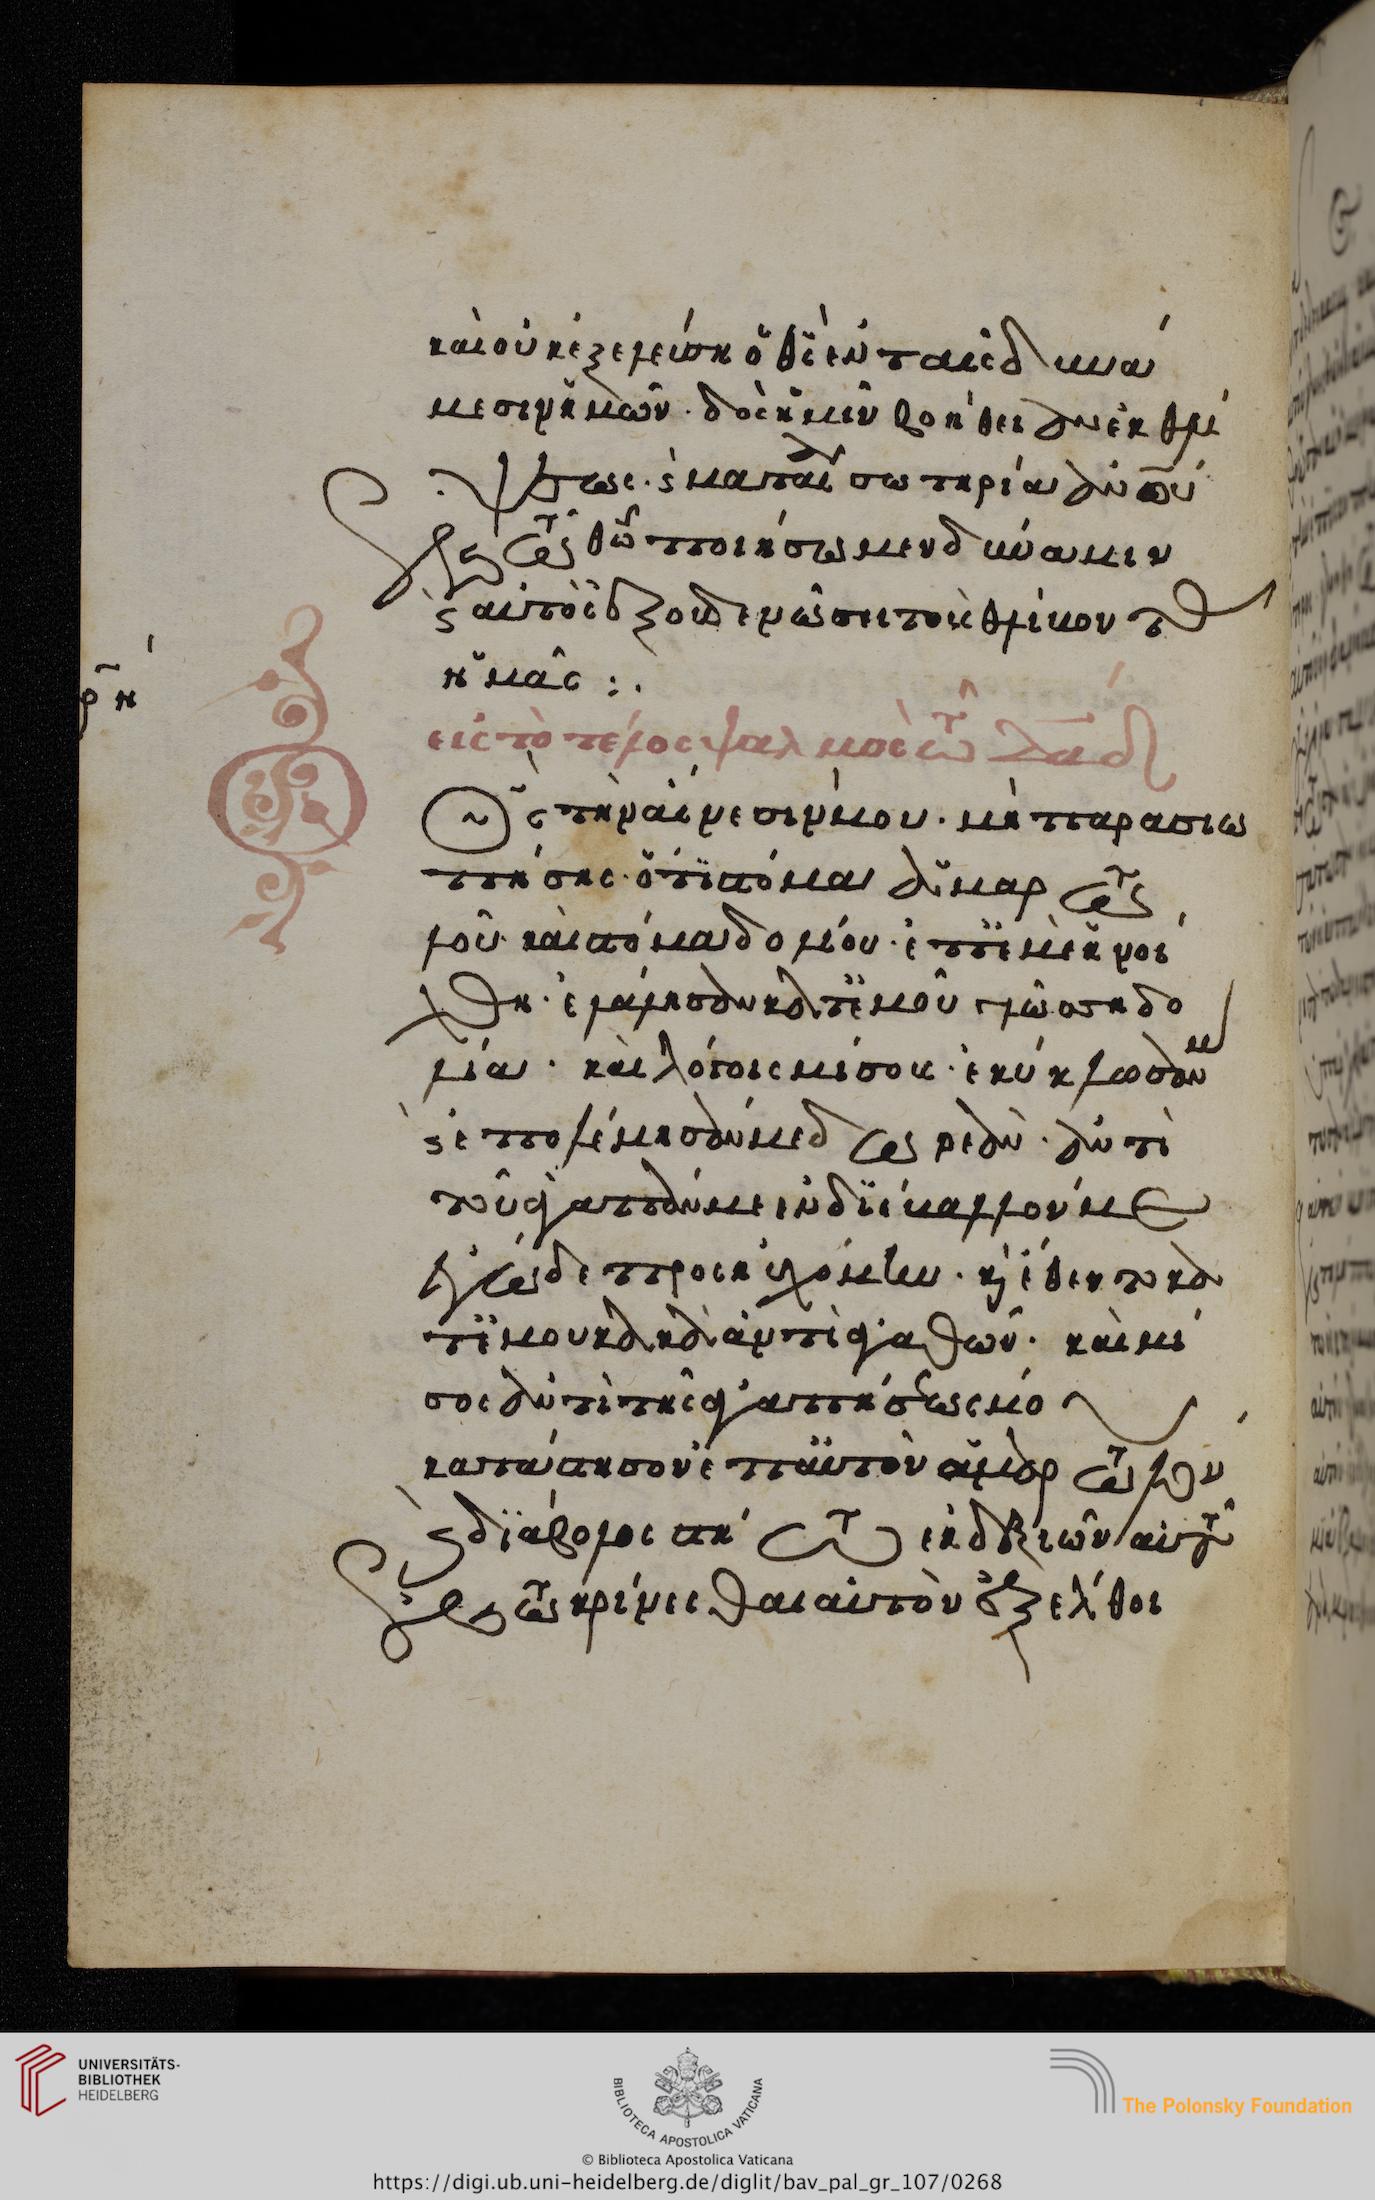 καὶ οὐκ ἐξελεύση ὁ θς ἐν ταῖς δυνά
μεσιν ἡμῶν. δὸς ἡμῖν βοήθειαν ἐκ θλί
ψεως. καὶ ματαία σωτηρία ἀνου
ἐν τῶ θῶ ποιήσωμεν δύναμιν
καὶ αὐτὸς ἐξουδενώσει τοὺς θλίβοντας
ἡμᾶς :.
ρη
εἰς τὸ τέλος ψαλμὸς τῶ δαδ
Ὁ θς τὴν αἴνεσίν μου. μὴ παρασιω
πήσης. ὅτι στόμα ἁμαρτω
λοῦ καὶ στόμα δολίου. ἐπ' ἐμὲ ἠνοί
χθη. ἐλάλησαν κατ' ἐμοῦ γλώσση δο
λία. καὶ λόγοις μίσους. ἐκύκλωσάν με
καὶ ἐπολέμησάν με δωρεάν. ἀντὶ
τοῦ ἀγαπᾶν με ἐνδιέβαλλόν με
ἐγὼ δὲ προσηυχόμην. καὶ ἔθεντο κα
τ' ἐμοῦ κακὰ ἀντὶ ἀγαθῶν. καὶ μῖ
σος ἀντὶ τῆς ἀγαπήσεώς μου
κατάστησον ἐπ' αὐτὸν ἁμαρτωλὸν
καὶ διάβολος στήτω ἐκ δεξιῶν αὐτοῦ
ἐν τῶ κρίνεσθαι αὐτὸν ἐξέλθοι
UNIVERSITÄTS-
BIBLIOTHEK
HEIDELBERG
BIBLIOTECA APOSTOLICA VATICANA
© Biblioteca Apostolica Vaticana
The Polonsky Foundation
https://digi.ub.uni-heidelberg.de/diglit/bav_pal_gr_107/0268